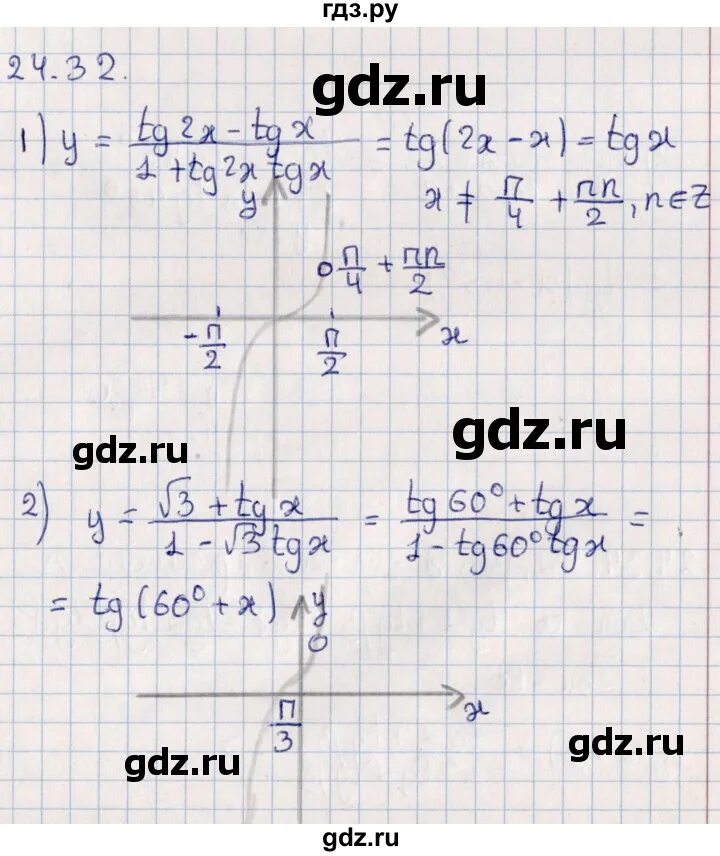 гдз.ру
24.32.
gdz.ru
1) y = (tg 2x - tg x)/(1 + tg 2x tg x) = tg(2x - x) = tg x
y x ≠ π/4 + πn/2, n ∈ Z
π/4 + πn/2
-π/2 π/2 x
gdz.ru gdz.ru
2) y = (√3 + tg x)/(1 - √3 tg x) = (tg 60° + tg x)/(1 - tg 60° tg x) =
= tg(60° + x) y
π/3 x
gdz.ru gdz.ru
gdz.ru